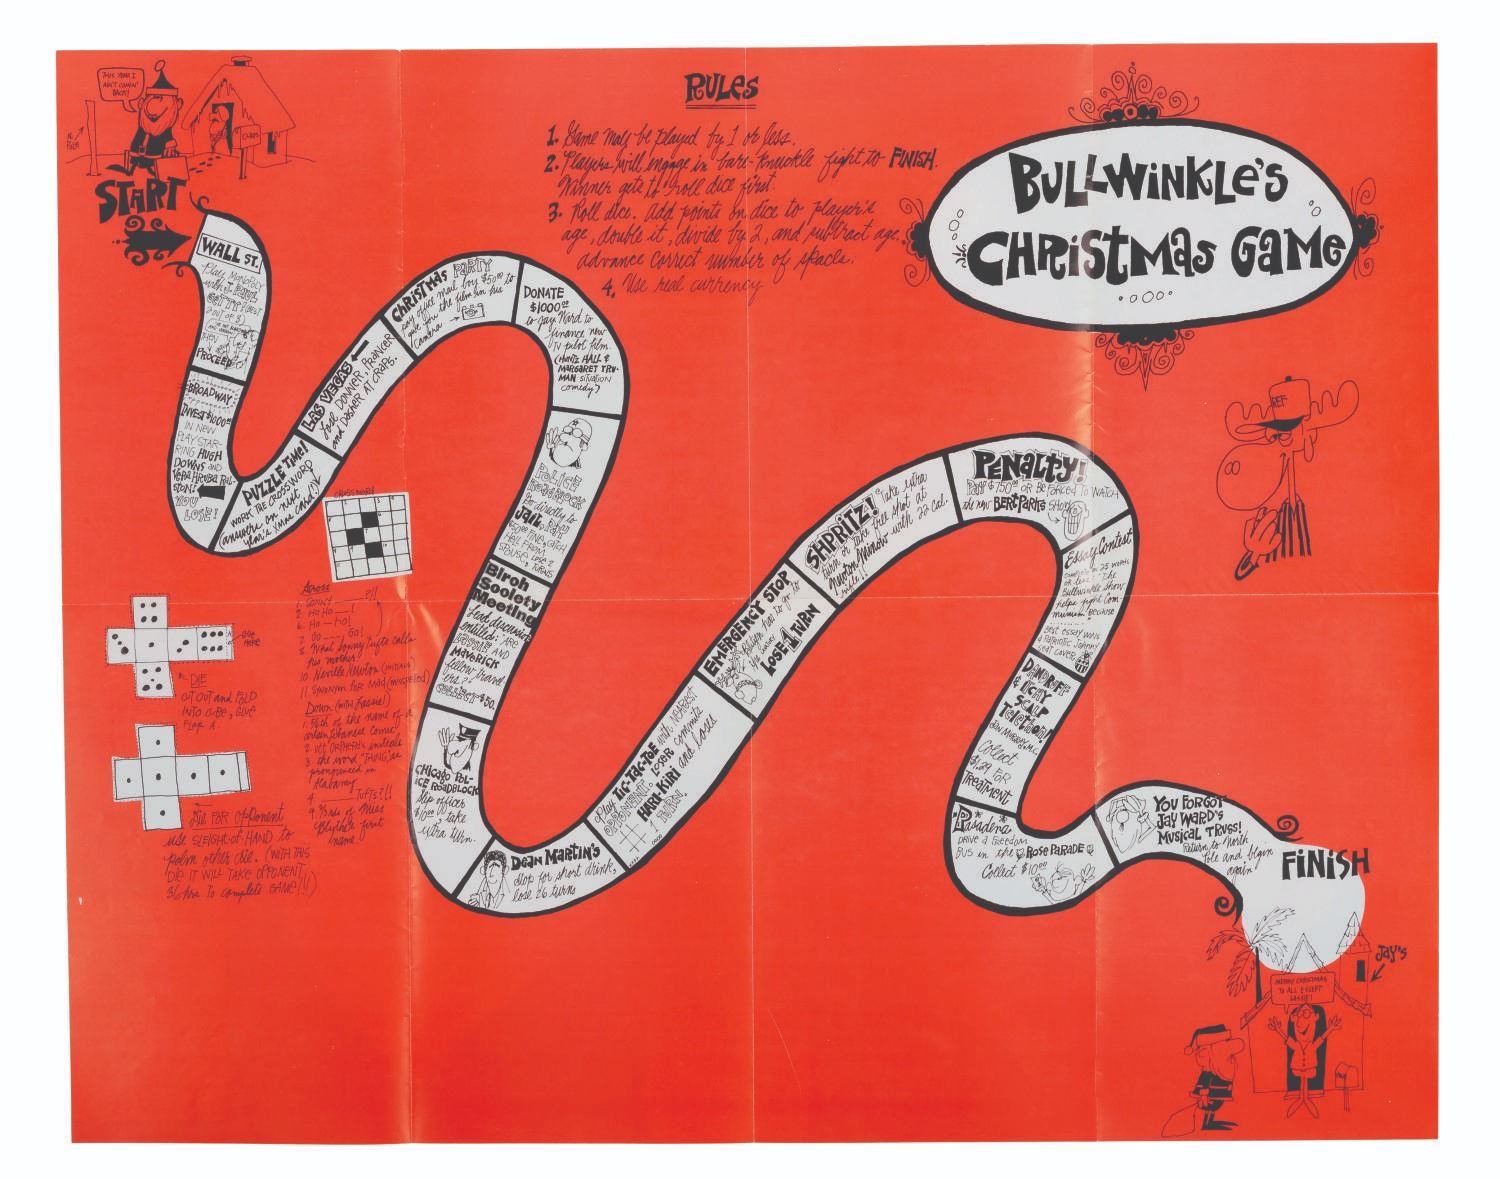 THIS YEAR I
AIN'T COMIN'
BACK!
N.
POLE
START
RULES
1. Game may be played by 1 or less.
2. Players will engage in bare-knuckle fight to FINISH.
Winner gets to roll dice first.
3. Roll dice. Add points on dice to player's
age, double it, divide by 2, and subtract age,
advance correct number of spaces.
4. Use real currency
BULLWINKLE'S
CHRISTMAS GAME
WALL ST.
Play MONOPOLY
with J. PAUL
GETTY (BEST
2 OUT OF 3)
THEN
PROCEED
BROADWAY.
INVEST $1000
IN NEW
PLAY STAR-
RING HUGH
DOWNS AND
VERA HRUBA RAL-
STON!
YOU
LOSE!
PUZZLE TIME!
WORK THE CROSSWORD
(answers on next
year's Xmas card!)
LAS VEGAS
Lose DONNER, PRANCER
and DASHER AT CRAPS.
CHRISTMAS PARTY
pay office mail boy $50.00 to
give you the film in his
camera
DONATE
$1000.00
to Jay Ward to
finance new
TV pilot film.
(HUNTZ HALL &
MARGARET TRU-
MAN SITUATION
comedy?)
POLICE
ROADBLOCK
Go directly to
JAIL. Pay
$50.00 FINE, CATCH
HELL FROM
SPOUSE, LOSE 2
TURNS
Birch
Society
Meeting
Lead discussion
entitled: ARE
AND
MAVERICK
fellow travel-
ers?
COLLECT $50.
CHICAGO POL-
ICE ROADBLOCK
Slip officer
$10.00 take
extra turn.
DEAN MARTIN'S
Stop for short drink,
lose 26 turns
Play TIC-TAC-TOE with NEAREST
OPPONENT. LOSER commits
HARI-KIRI and loses
1 TURN.
EMERGENCY STOP
has to go to
LOSE 1 TURN
SHPRITZ! Take extra
turn or take free shot at
Newton Minow with 22 cal.
PENALTY!
PAY $750.00 OR BE FORCED TO WATCH
the new BERT PARKS SHOW
Essay Contest
Complete in 25 words
or less: "The
Bullwinkle Show
helps fight Com-
munism Because
Best essay wins
a patriotic Johnny
seat cover
DANDRUFF
& ITCHY
SCALP
Telethon!
JAN MURRAY, M.C.
Collect
$1.29 FOR
TREATMENT
Pasadena
DRIVE A FREEDOM
BUS in the ROSE PARADE
Collect $10.00
YOU FORGOT
JAY WARD'S
MUSICAL TRUSS!
Return to North
Pole and begin
again
FINISH
REF
CROSSWORD
Across
1. SONNY ___?!!
2. HO HO ___!
6. Ho ___ Ho!
7. Go ___ Go!
8. What Sonny Tufts calls
his mother!
10. Neville Newton (INITIALS)
11. SYNONYM FOR MAD (misspelled)
Down (with Lassie!)
1. 5/6th of the name of a
certain Lebanese comic.
2. Vet ORPHEUM's initials
3. the word "THING," as
pronounced in
Alabamy
4. ___ TUFTS?!!
9. 3/5rds of Miss
Blythe's first
name
GLUE
HERE
DIE
CUT OUT and FOLD
INTO CUBE, GLUE
FLAP A.
DIE FOR OPPONENT
use SLEIGHT-of-HAND to
palm other die. (WITH THIS
DIE IT WILL TAKE OPPONENT
3½ hrs to complete GAME!!)
JAY'S
MERRY CHRISTMAS
TO ALL EXCEPT
LASSIE!